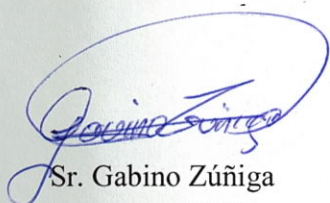 Gavino Zúniga
Sr. Gabino Zúñiga